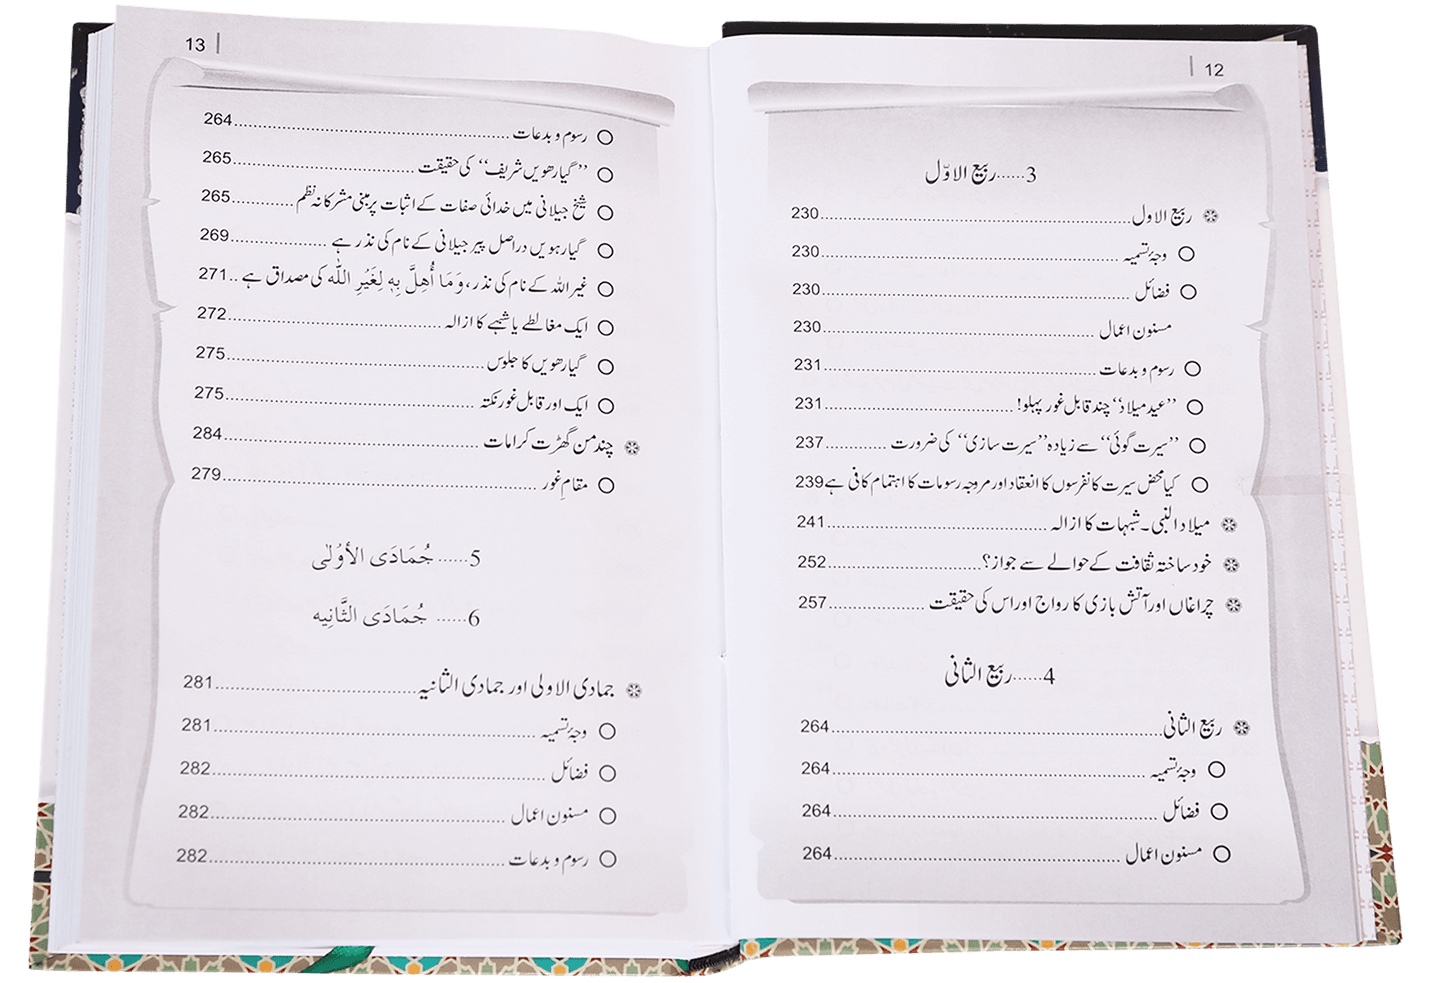 12
3......ربیع الاوّل
ربیع الاول............230
وجۂ تسمیہ............230
فضائل............230
مسنون اعمال............230
رسوم و بدعات............231
”عید میلاد“ چند قابل غور پہلو!............231
”سیرت گوئی“ سے زیادہ ”سیرت سازی“ کی ضرورت............237
کیا محض سیرت کانفرنسوں کا انعقاد اور مروجہ رسومات کا اہتمام کافی ہے 239
میلاد النبی۔ شبہات کا ازالہ............241
خود ساختہ ثقافت کے حوالے سے جواز؟............252
چراغاں اور آتش بازی کا رواج اور اس کی حقیقت............257
4......ربیع الثانی
ربیع الثانی............264
وجۂ تسمیہ............264
فضائل............264
مسنون اعمال............264
13
رسوم و بدعات............264
”گیارھویں شریف“ کی حقیقت............265
شیخ جیلانی میں خدائی صفات کے اثبات پر مبنی مشرکانہ نظم............265
گیارہویں دراصل پیر جیلانی کے نام کی نذر ہے............269
غیر اللہ کے نام کی نذر، وَمَا أُهِلَّ بِهٖ لِغَيْرِ اللّٰه کی مصداق ہے..271
ایک مغالطے یا شبہے کا ازالہ............272
گیارھویں کا جلوس............275
ایک اور قابل غور نکتہ............275
چند من گھڑت کرامات............284
مقامِ غور............279
5......جُمَادَى الأوْلٰى
6......جُمَادَى الثَّانِيه
جمادی الاولی اور جمادی الثانیہ............281
وجۂ تسمیہ............281
فضائل............282
مسنون اعمال............282
رسوم و بدعات............282